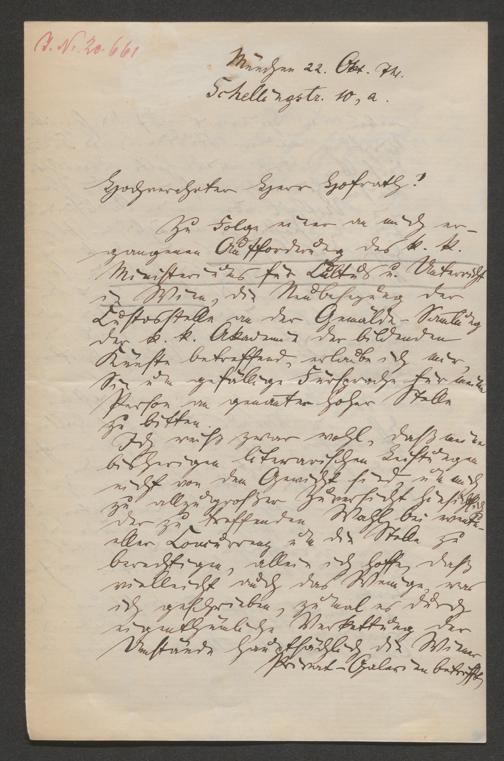 J. N. 20.661
München 22. Okt. 74.
Schellingstr. 10, a.
Hochverehrter Herr Hofrath!
Zu Folge einer an mich er-
gangenen Aufforderung des k. k.
Ministeriums für Cultus u. Unterricht
in Wien, die Neubesetzung der
Custosstelle an der Gemälde-Samlung
der k. k. Akademie der bildenden
Künste betreffend, erlaube ich mir,
Sie um gefällige Fürsprache für meine
Person an genanter hoher Stelle
zu bitten.
Ich weiß zwar wohl, daß meine
bisherigen literarischen Leistungen
nicht von dem Gewicht sind, um mich
zu allzugroßer Zuversicht hinsichtlich
der zu treffenden Wahl bei eventu-
eller Concurrenz um die Stelle zu
berechtigen, allein ich hoffe, daß
vielleicht auch das Wenige, was
ich geschrieben, zumal es durch
eigenthümliche Verkettung der
Umstände hauptsächlich die Wiener
Privat-Galerien betrifft,